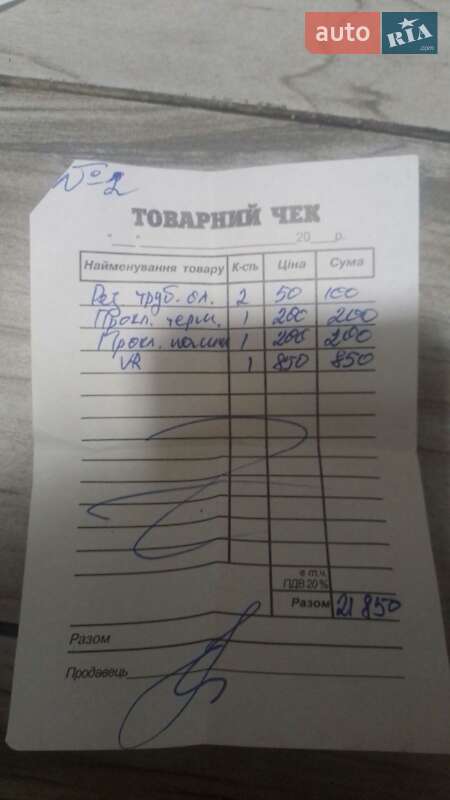 auto RIA .com
№ 2
ТОВАРНИЙ ЧЕК
20 р.
Найменування товару К-сть Ціна Сума
труб. 2 50 100
Прокл. 1 200 200
Прокл. 1 200 200
VR 1 850 850
в т.ч.
ПДВ 20%
Разом 21 850
Разом
Продавець